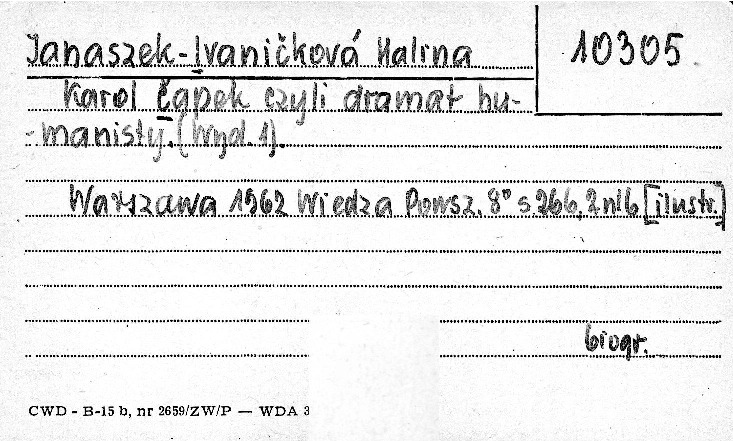 Janaszek-Ivaničková Halina
10305
Karol Čapek czyli dramat hu-
-manisty. (Wyd. 1).
Warszawa 1962 Wiedza Powsz. 8° s. 266, 2 nlb [ilustr.]
biogr.
CWD - B-15 b, nr 2659/ZW/P — WDA 3